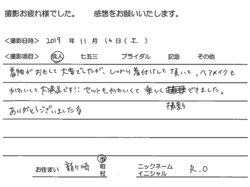 撮影お疲れ様でした。 感想をお願いいたします。
<撮影日時> 2019 年 11 月 16 日 (土)
<撮影項目> 成人 七五三 ブライダル 記念 その他
着物がおもくて大変でしたが、しっかり着付けして頂いて、ヘアメイクも
かわいくて大満足です!! セットもかわいくて楽しく撮影できました。
ありがとうございました
お住まい 龍ヶ崎 市 町 村 ニックネーム イニシャル R.O